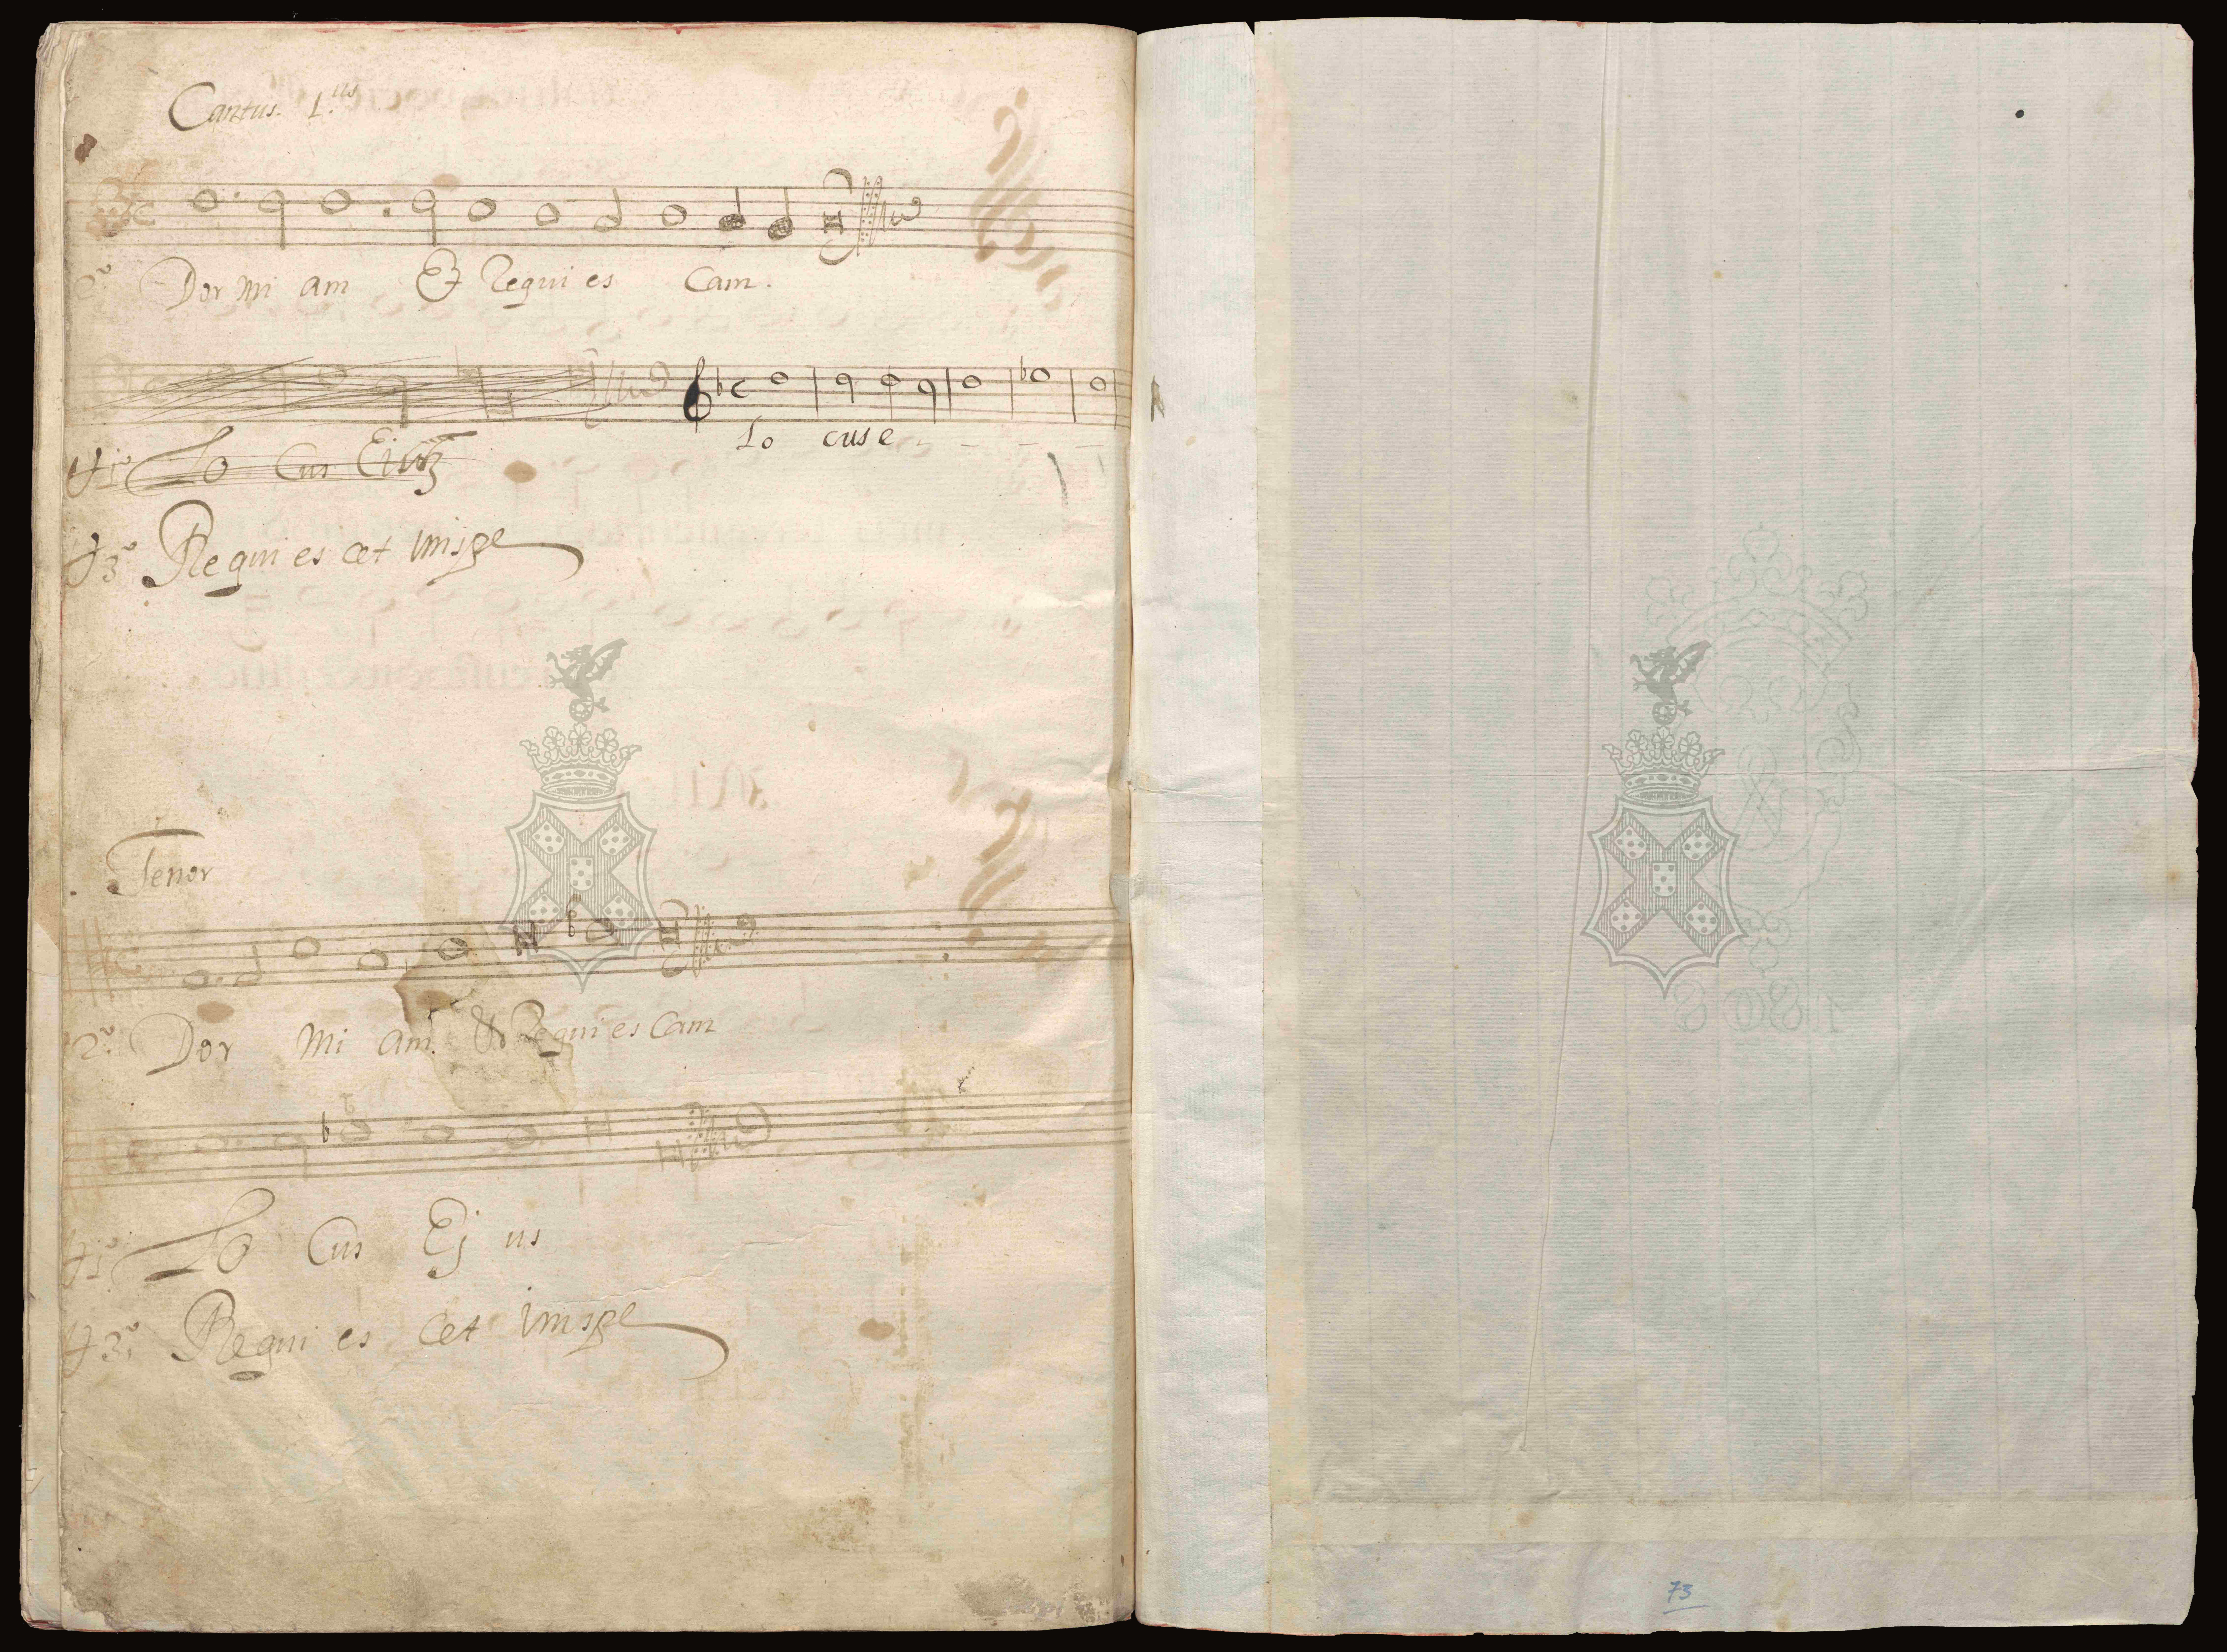 Cantus. 1.us
2º Dor mi am Et Requi es Cam.
Lo cus e - - - -
℣1º Lo Cus Eius
℣3º Requi es cet in
Tenor
2º Dor mi am. Et Requi es Cam
℣1º Lo Cus Ej us
℣3º Requi es cet in
1808
73